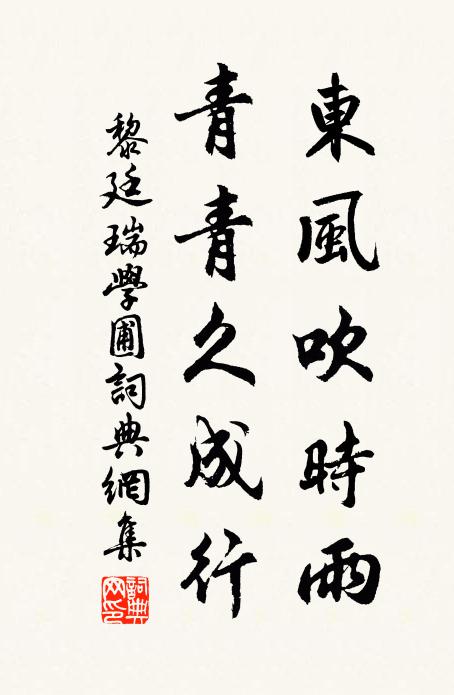 東風吹時雨
青青久成行
黎廷瑞學圃詞典網集
詞典網印